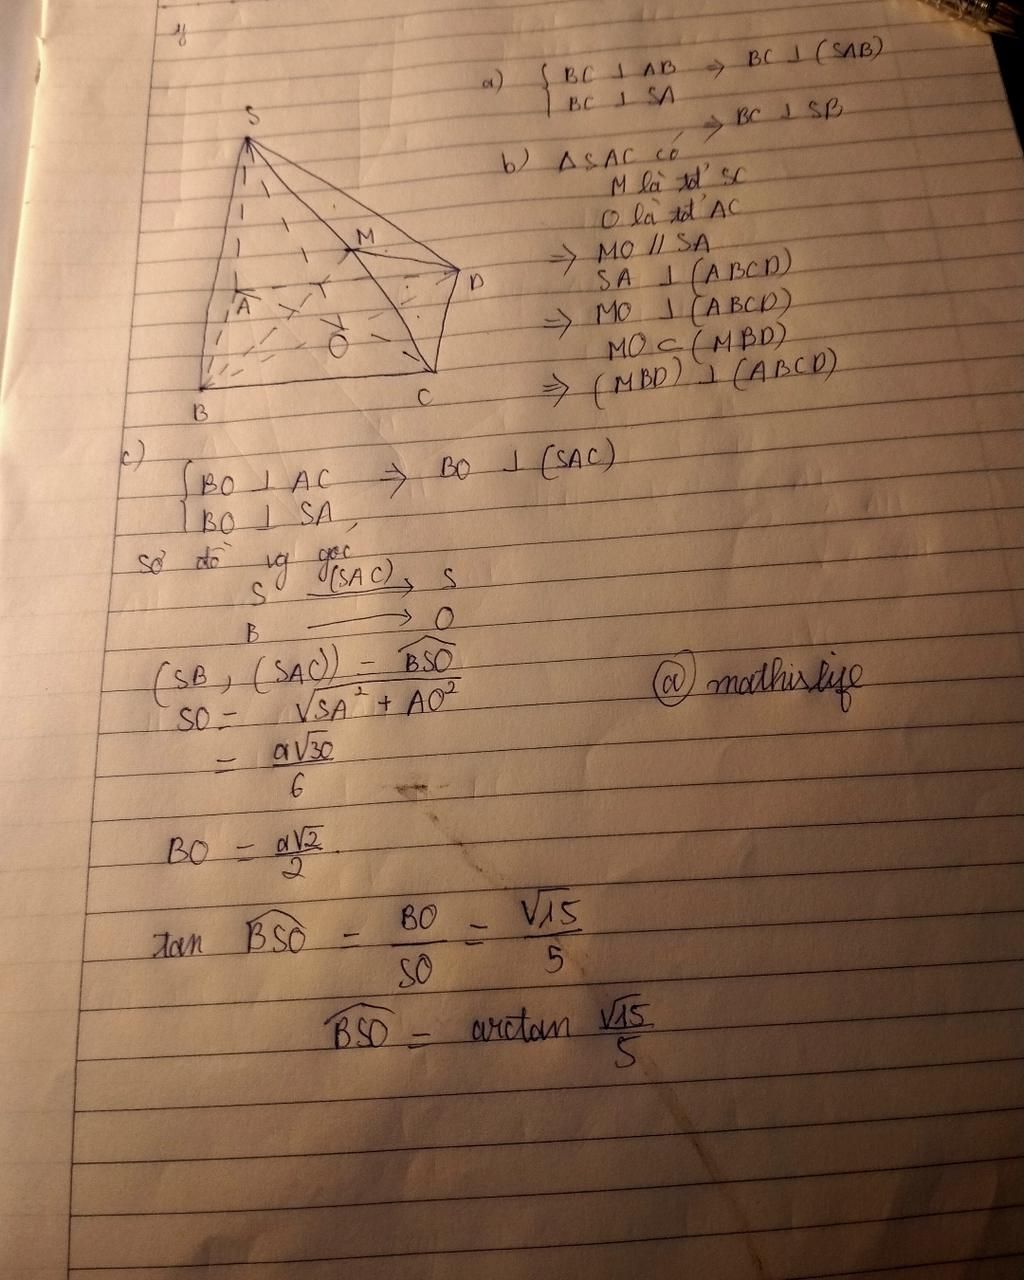 1/
S
M
A
D
O
B
C
a) { BC ⊥ AB → BC ⊥ (SAB)
BC ⊥ SA
⇒ BC ⊥ SB
b) ΔSAC có
M là tđ' SC
O là tđ' AC
⇒ MO // SA
SA ⊥ (ABCD)
⇒ MO ⊥ (ABCD)
MO ⊂ (MBD)
⇒ (MBD) ⊥ (ABCD)
c)
{ BO ⊥ AC ⇒ BO ⊥ (SAC)
BO ⊥ SA
sơ đồ vg góc
S (SAC)→ S
B → O
(SB, (SAC)) = \widehat{BSO}
SO = √(SA² + AO²)
= a√30/6
BO = a√2/2
tan \widehat{BSO} = BO/SO = √15/5
\widehat{BSO} = arctan √15/5
@ mathislife